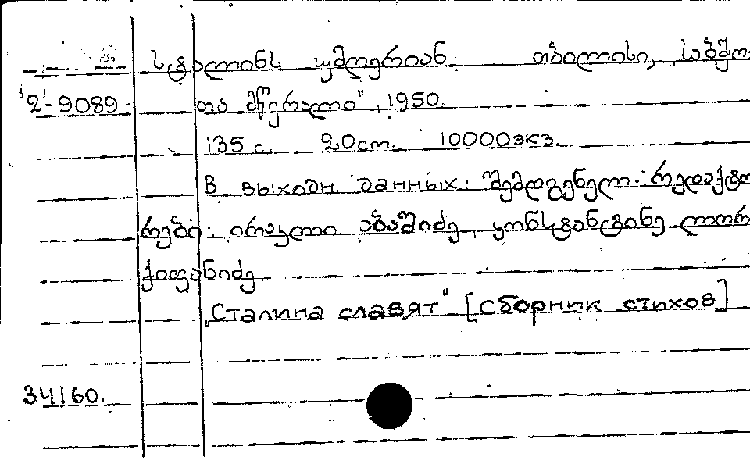 სტალინს უმღერიან. თბილისი, საბჭო
2-9089 თა მწერალი", 1950.
135 с. 20см. 10000экз.
В выходн. данных: შემდგენელ-რედაქტო
რები: ირაკლი აბაშიძე, კონსტანტინე ლორ
ქიფანიძე
„Сталина славят" [сборник стихов]
34160.